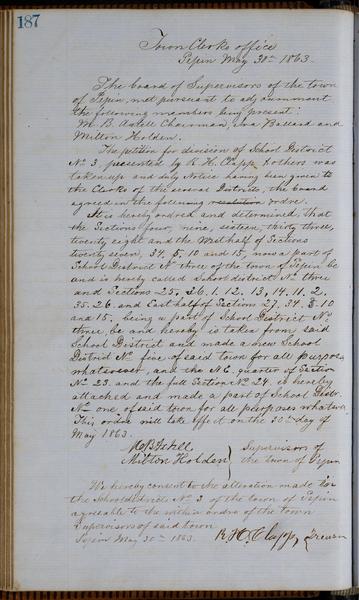 187
Town Clerks office
Pepin May 30th 1863.
The board of Supervisors of the town
of Pepin, met pursuant to adjournment
the following members being present:
M. B. Axtell Chairman, Ira Ballard and
Milton Holden.
The petition for division of School District
No 3, presented by R. H. Clapp & others was
taken up and duly Notice having been given to
the Clerks of the several Districts, the board
agreed in the following resolution ordre.
It is hereby ordered and determined, that
the Sections four, nine, sixteen, thirty three,
twenty eight and the West half of Sections
twenty seven, 34, 5, 10 and 15, now a part of
School District No three of the town of Pepin be
and is hereby called School district No three
and Sections 25, 26, 1, 12, 13, 14, 11, 2,
35, 26 and East half of Sections 27, 34, 3, 10
and 15, being a part of School District No
three, be and hereby is taken from said
School District and made a new School
District No five of said town for all purposes
whatsoever, and the N.E. quarter of Section
No 23 and the full Section No 24 is hereby
attached and made a part of School Distr.
No one of said town for all perposes whatever
This ordre will take effect on the 30th day of
May 1863.
M. B. Axtell
Milton Holden
Supervisors of
the town of Pepin
We hereby consent to the alteration made in
the School district No 3 of the town of Pepin
agreable to the within ordre of the town
Supervisors of said town
Pepin May 30th 1863. R. H. Clapp